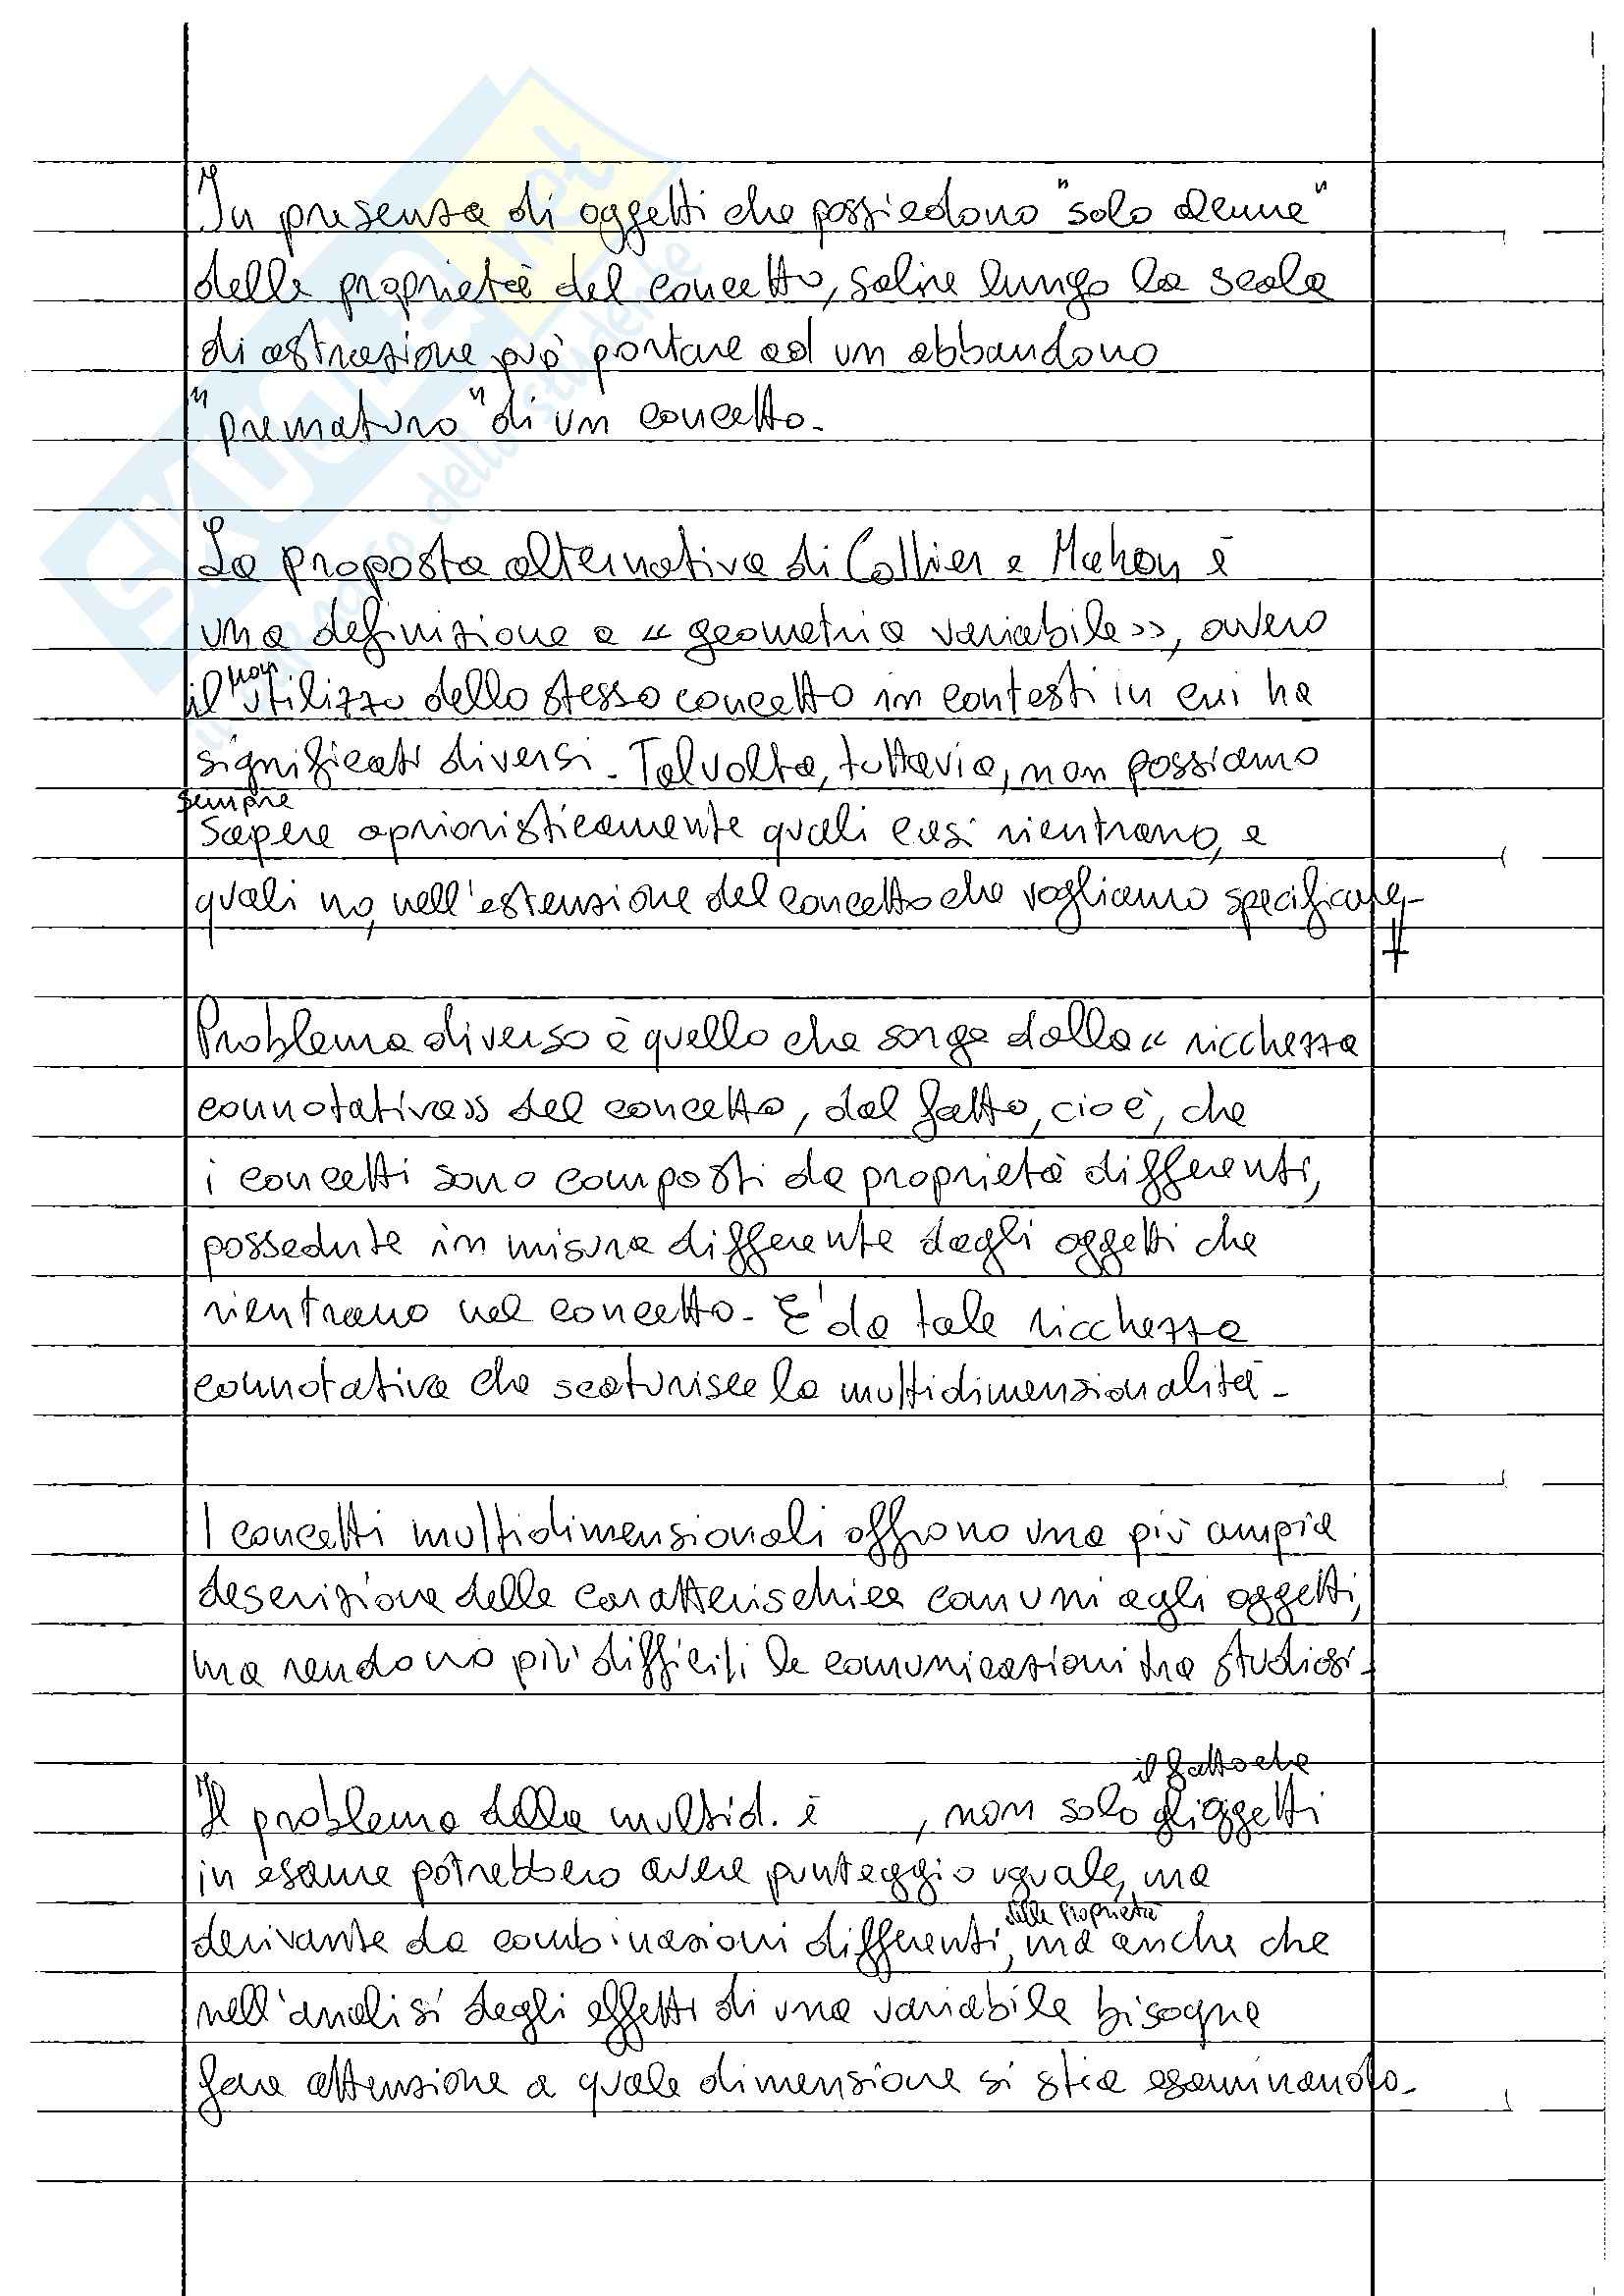 In presenza di oggetti che possiedono "solo alcune"
delle proprietà del concetto, salire lungo la scala
di astrazione può portare ad un abbandono
"prematuro" di un concetto.
La proposta alternativa di Collier e Mahon è
una definizione a «geometria variabile», ovvero
il non utilizzo dello stesso concetto in contesti in cui ha
significati diversi. Talvolta, tuttavia, non possiamo
sempre
sapere aprioristicamente quali casi rientrano, e
quali no, nell'estensione del concetto che vogliamo specificare.
Problema diverso è quello che sorge dalla «ricchezza
connotativa» del concetto, dal fatto, cioè, che
i concetti sono composti da proprietà differenti,
possedute in misura differente dagli oggetti che
rientrano nel concetto. E' da tale ricchezza
connotativa che scaturisce la multidimensionalità.
I concetti multidimensionali offrono una più ampia
descrizione delle caratteristiche comuni agli oggetti,
ma rendono più difficili le comunicazioni tra studiosi.
il fatto che
Il problema della multid. è , non solo gli oggetti
in esame potrebbero avere punteggio uguale, ma
delle proprietà
derivante da combinazioni differenti, ma anche che
nell'analisi degli effetti di una variabile bisogna
fare attenzione a quale dimensione si stia esaminando.
SKUOLA.net